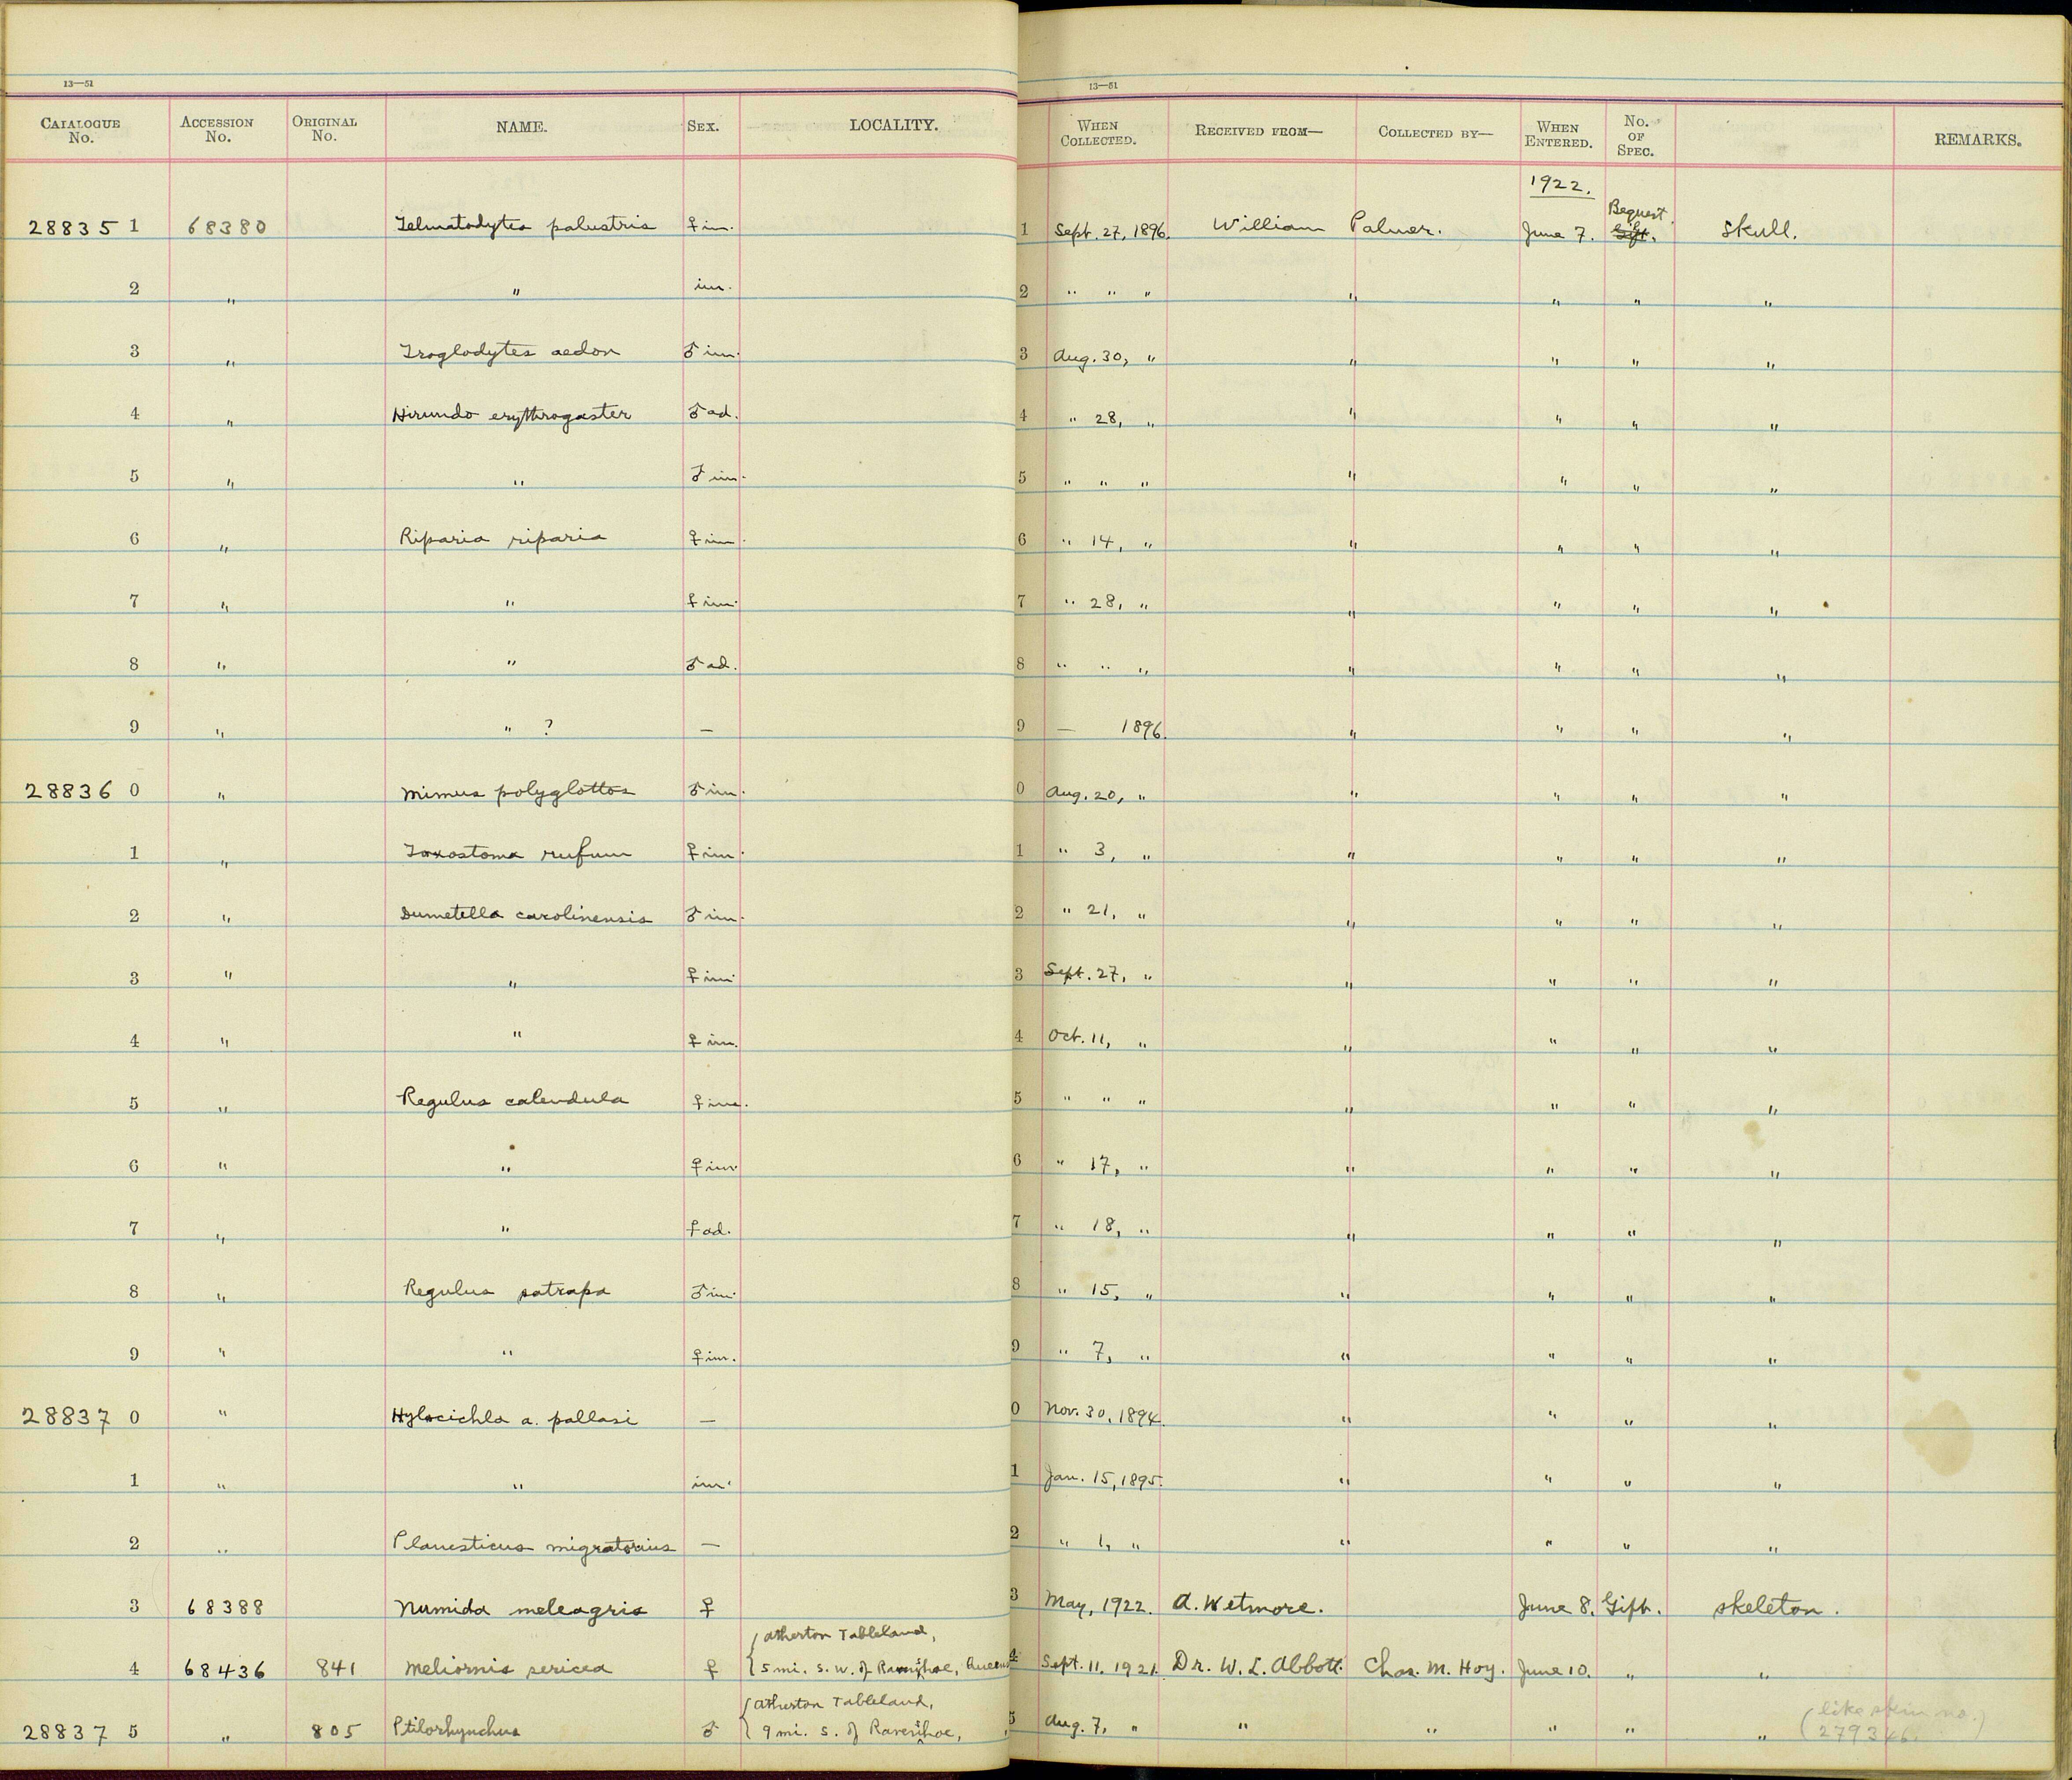 13—51
13—51
CATALOGUE No. ACCESSION No. ORIGINAL No. NAME. SEX. LOCALITY. WHEN COLLECTED. RECEIVED FROM— COLLECTED BY— WHEN ENTERED. No. OF SPEC. REMARKS.
1922.
28835 1 68380 Telmatodytes palustris ♀ im. 1 Sept. 27, 1896. William Palmer. June 7. Bequest Gift. Skull.
2 " " im. 2 " " " " " " "
3 " Troglodytes aedon ♂ im. 3 Aug. 30, " " " " "
4 " Hirundo erythrogaster ♂ ad. 4 " 28, " " " " "
5 " " ♂ im. 5 " " " " " " "
6 " Riparia riparia ♀ im. 6 " 14, " " " " "
7 " " ♀ im. 7 " 28, " " " " "
8 " " ♂ ad. 8 " " " " " " "
9 " " ? — 9 — 1896. " " " "
28836 0 " Mimus polyglottos ♂ im. 0 Aug. 20, " " " " "
1 " Toxostoma rufum ♀ im. 1 " 3, " " " " "
2 " Dumetella carolinensis ♂ im. 2 " 21, " " " " "
3 " " ♀ im. 3 Sept. 27, " " " " "
4 " " ♀ im. 4 Oct. 11, " " " " "
5 " Regulus calendula ♀ im. 5 " " " " " " "
6 " " ♀ im. 6 " 17, " " " " "
7 " " ♀ ad. 7 " 18, " " " " "
8 " Regulus satrapa ♂ im. 8 " 15, " " " " "
9 " " ♀ im. 9 " 7, " " " " "
28837 0 " Hylocichla a. pallasi — 0 Nov. 30, 1894. " " " "
1 " " im. 1 Jan. 15, 1895. " " " "
2 " Planesticus migratorius — 2 " 1, " " " " "
3 68388 Numida meleagris ♀ 3 May, 1922. A. Wetmore. June 8. Gift. skeleton.
Atherton Tableland,
4 68436 841 Meliornis sericea ♀ 5 mi. S. W. of Ravenshoe, Queens 4 Sept. 11, 1921. Dr. W. L. Abbott. Chas. M. Hoy. June 10. " "
Atherton Tableland,
28837 5 " 805 Ptilorhynchus ♂ 9 mi. S. of Ravenshoe, " 5 Aug. 7, " " " " " " (like skin no. 279346.)